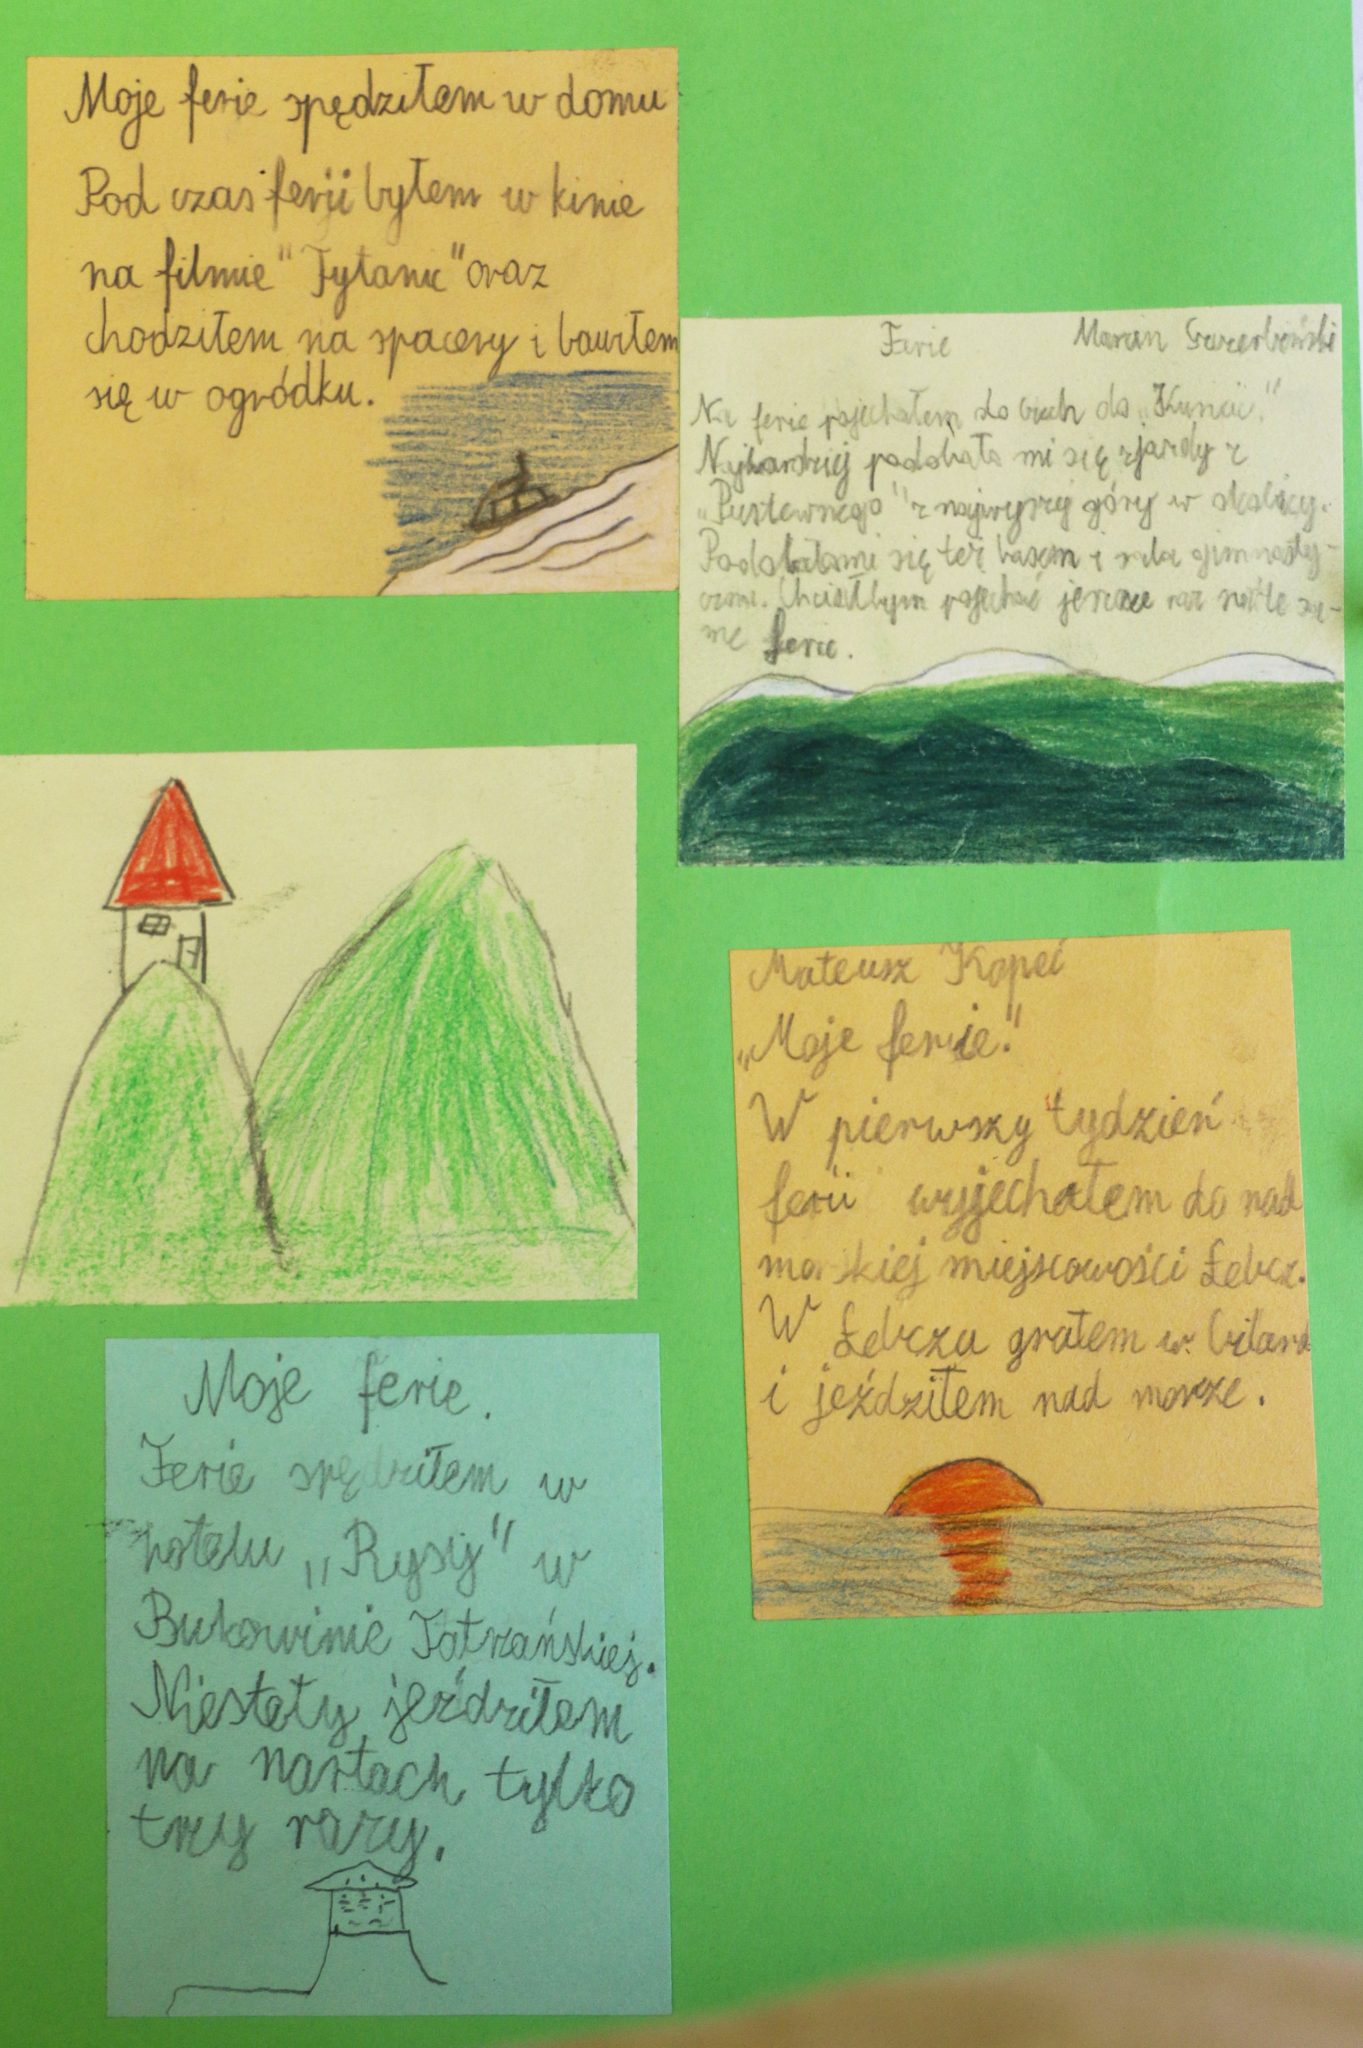 Moje ferie spędziłem w domu
Pod czas ferii byłem w kinie
na filmie "Tytanic" oraz
chodziłem na spacery i bawiłem
się w ogródku.
Ferie Marcin
Na ferie pojechałem do do
Najbardziej podobały mi się zjazdy z
z najwyższej góry w okolicy.
Podobał mi się też basen i sala gimnasty-
czna. Chciałbym pojechać jeszcze raz na te sa-
me ferie.
Mateusz Kopeć
„Moje ferie."
W pierwszy tydzień
ferii wyjechałem do nad
morskiej miejscowości Łebcz.
W Łebczu grałem w bilard
i jeździłem nad morze.
Moje ferie.
Ferie spędziłem w
hotelu „Rysy" w
Bukowinie Tatrzańskiej.
Niestety jeździłem
na nartach tylko
trzy razy.